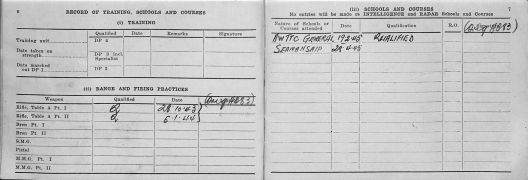 6
RECORD OF TRAINING, SCHOOLS AND COURSES
(i) TRAINING
Qualified Date Remarks Signature
Training unit DP 4
Date taken on strength DP 3 incl. Specialist
Date marched out DP 1 DP 2
(ii) RANGE AND FIRING PRACTICES
Weapon Qualified Date
Rifle, Table A Pt. I Q 28.10.43
Rifle, Table A Pt. II Q 6.1.44
Bren Pt. I
Bren Pt. II
S.M.G.
Pistol
M.M.G. Pt. I
M.M.G. Pt. II
7
(iii) SCHOOLS AND COURSES
No entries will be made re INTELLIGENCE and RADAR Schools and Courses
Nature of Schools or Courses attended Date Qualification R.O.
AWTTC GENERAL 19.2.45 QUALIFIED
SEAMANSHIP 28.4.45